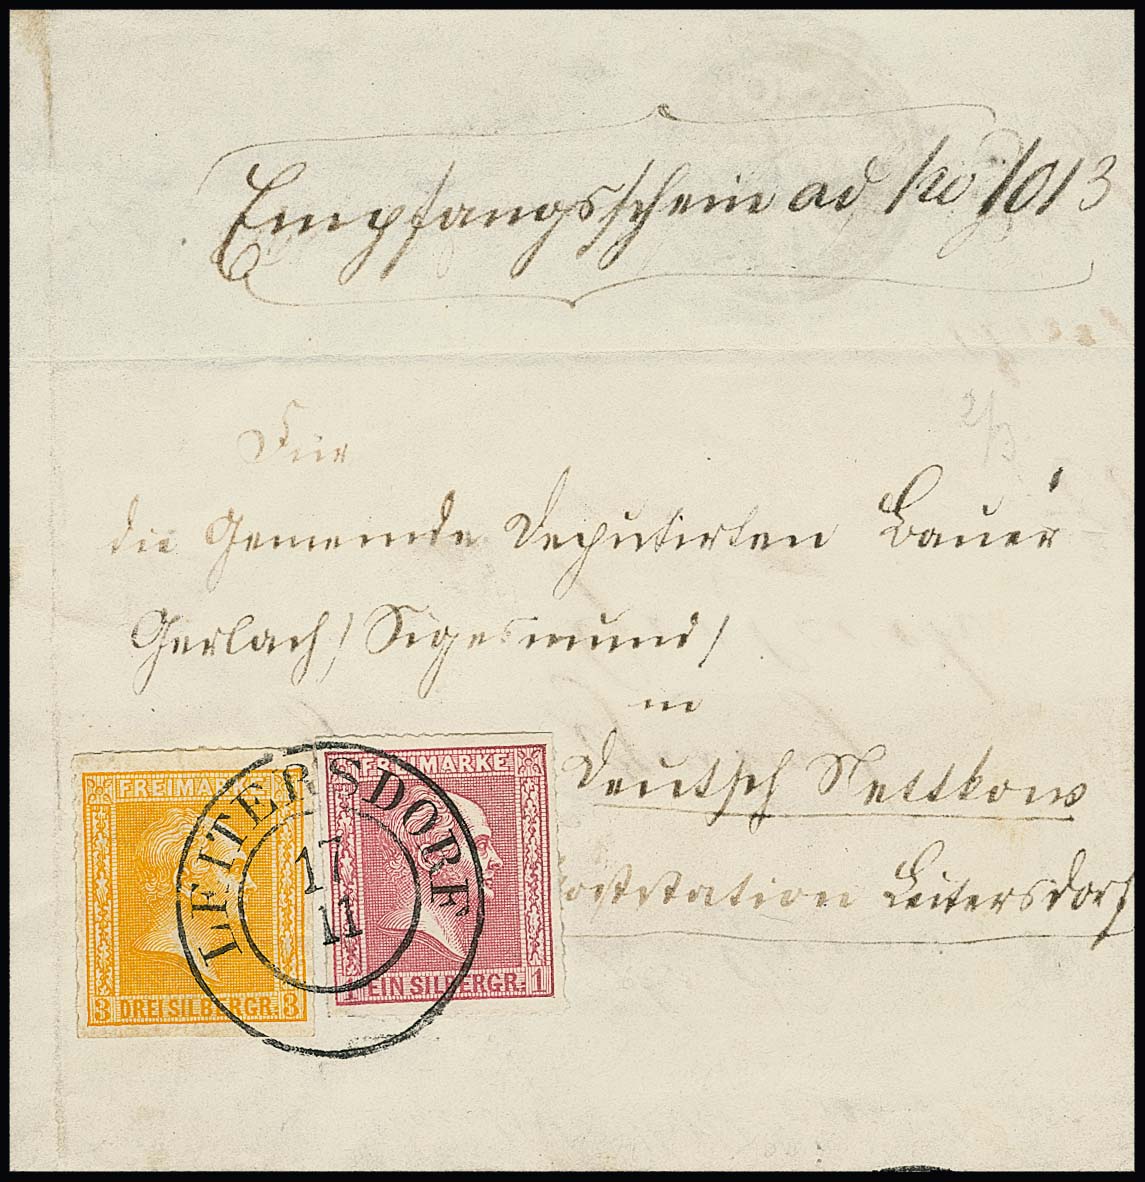 Empfangsschein ad No 1013
Für
die Gemeinde Deputirten Bauer
Gerlach /Sigesmund/
in
Deutsch Nettkow
Poststation Leitersdorf
FREIMARKE
3 DREI SILBERGR. 3
FREIMARKE
1 EIN SILBERGR. 1
LEITERSDORF
17
11